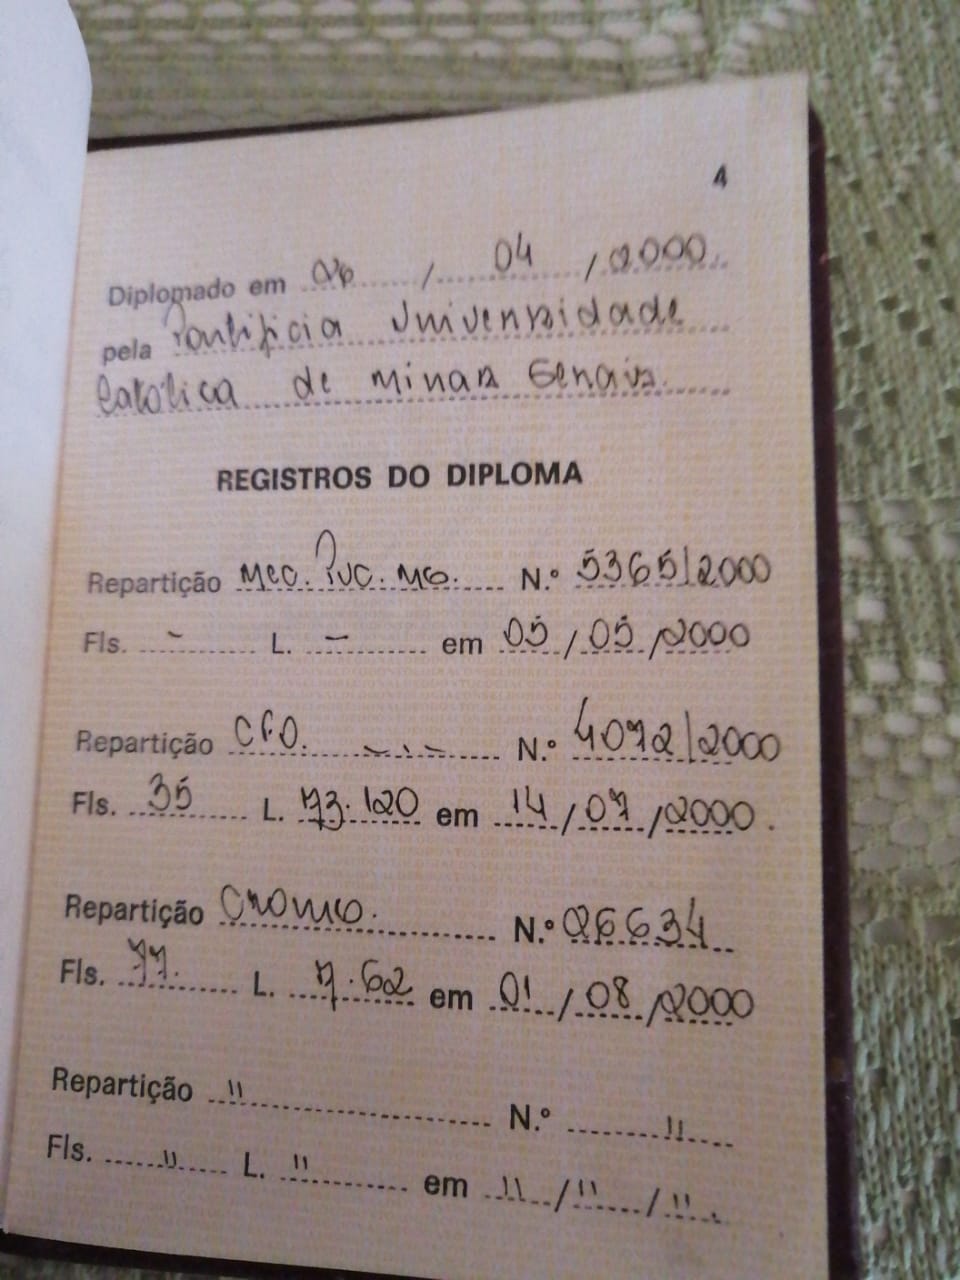 4
Diplomado em 06 / 04 / 2000.
pela Pontificia Universidade
Católica de Minas Gerais.
REGISTROS DO DIPLOMA
Repartição MEC. PUC. MG. N.º 5365/2000
Fls. - L. - em 05 / 05 / 2000
Repartição CFO. - . - . - N.º 4072/2000
Fls. 35 L. 73.120 em 14 / 07 / 2000.
Repartição CROMG. N.º 26634
Fls. 77. L. 7.62 em 01 / 08 / 2000
Repartição " N.º "
Fls. " L. " em " / " / ".